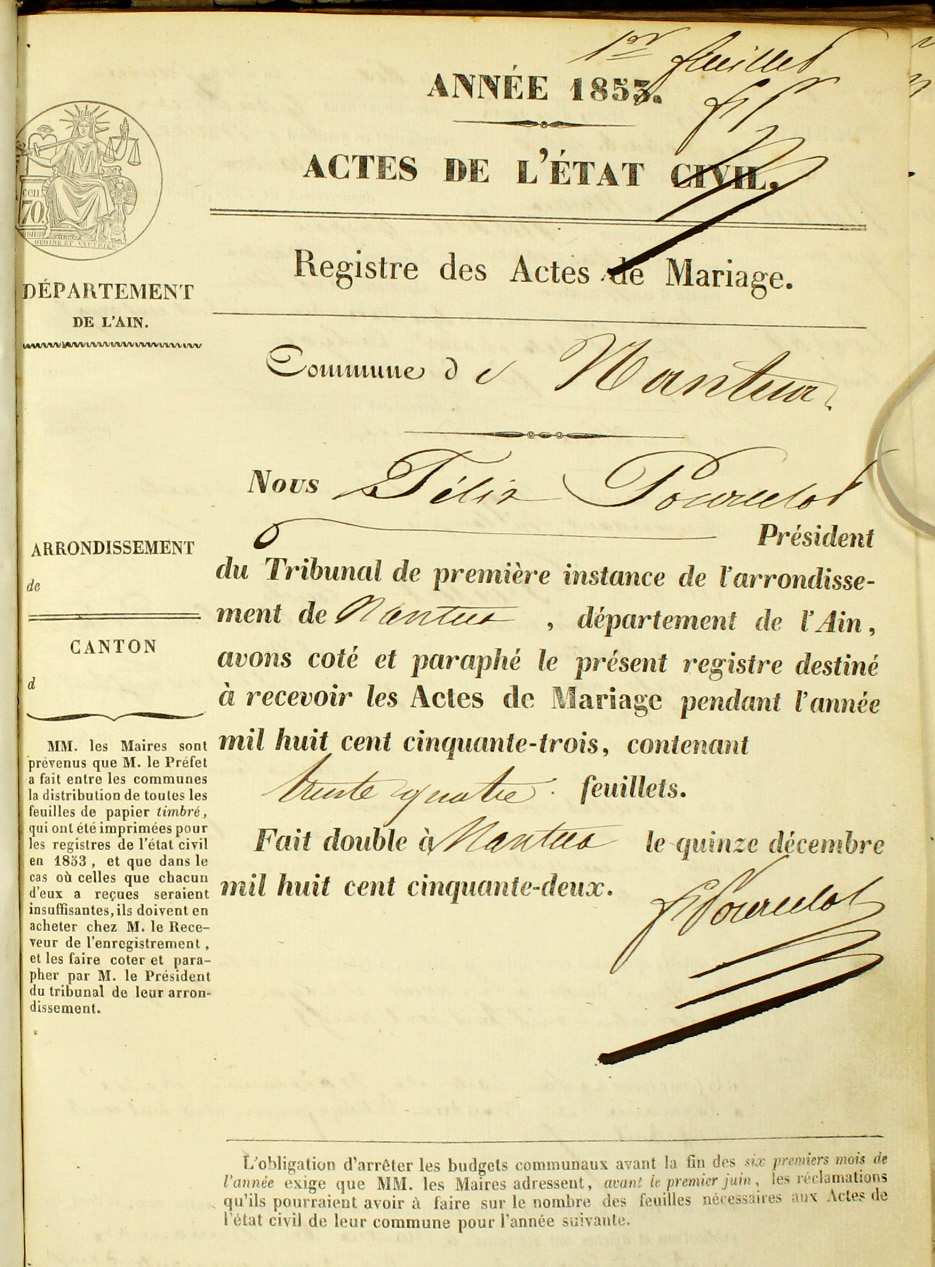 1er feuillet
ANNÉE 1853.
ACTES DE L'ÉTAT CIVIL.
Registre des Actes de Mariage.
DÉPARTEMENT
DE L'AIN.
Commune de Nantua.
Nous Félix Pourcelot
Président
du Tribunal de première instance de l'arrondisse-
ment de Nantua, département de l'Ain,
avons coté et paraphé le présent registre destiné
à recevoir les Actes de Mariage pendant l'année
mil huit cent cinquante-trois, contenant
trente quatre feuillets.
Fait double à Nantua le quinze décembre
mil huit cent cinquante-deux.
F Pourcelot
ARRONDISSEMENT
de
CANTON
d
MM. les Maires sont
prévenus que M. le Préfet
a fait entre les communes
la distribution de toutes les
feuilles de papier timbré,
qui ont été imprimées pour
les registres de l'état civil
en 1853, et que dans le
cas où celles que chacun
d'eux a reçues seraient
insuffisantes, ils doivent en
acheter chez M. le Rece-
veur de l'enregistrement,
et les faire coter et para-
pher par M. le Président
du tribunal de leur arron-
dissement.
L'obligation d'arrêter les budgets communaux avant la fin des six premiers mois de
l'année exige que MM. les Maires adressent, avant le premier juin, les réclamations
qu'ils pourraient avoir à faire sur le nombre des feuilles nécessaires aux Actes de
l'état civil de leur commune pour l'année suivante.